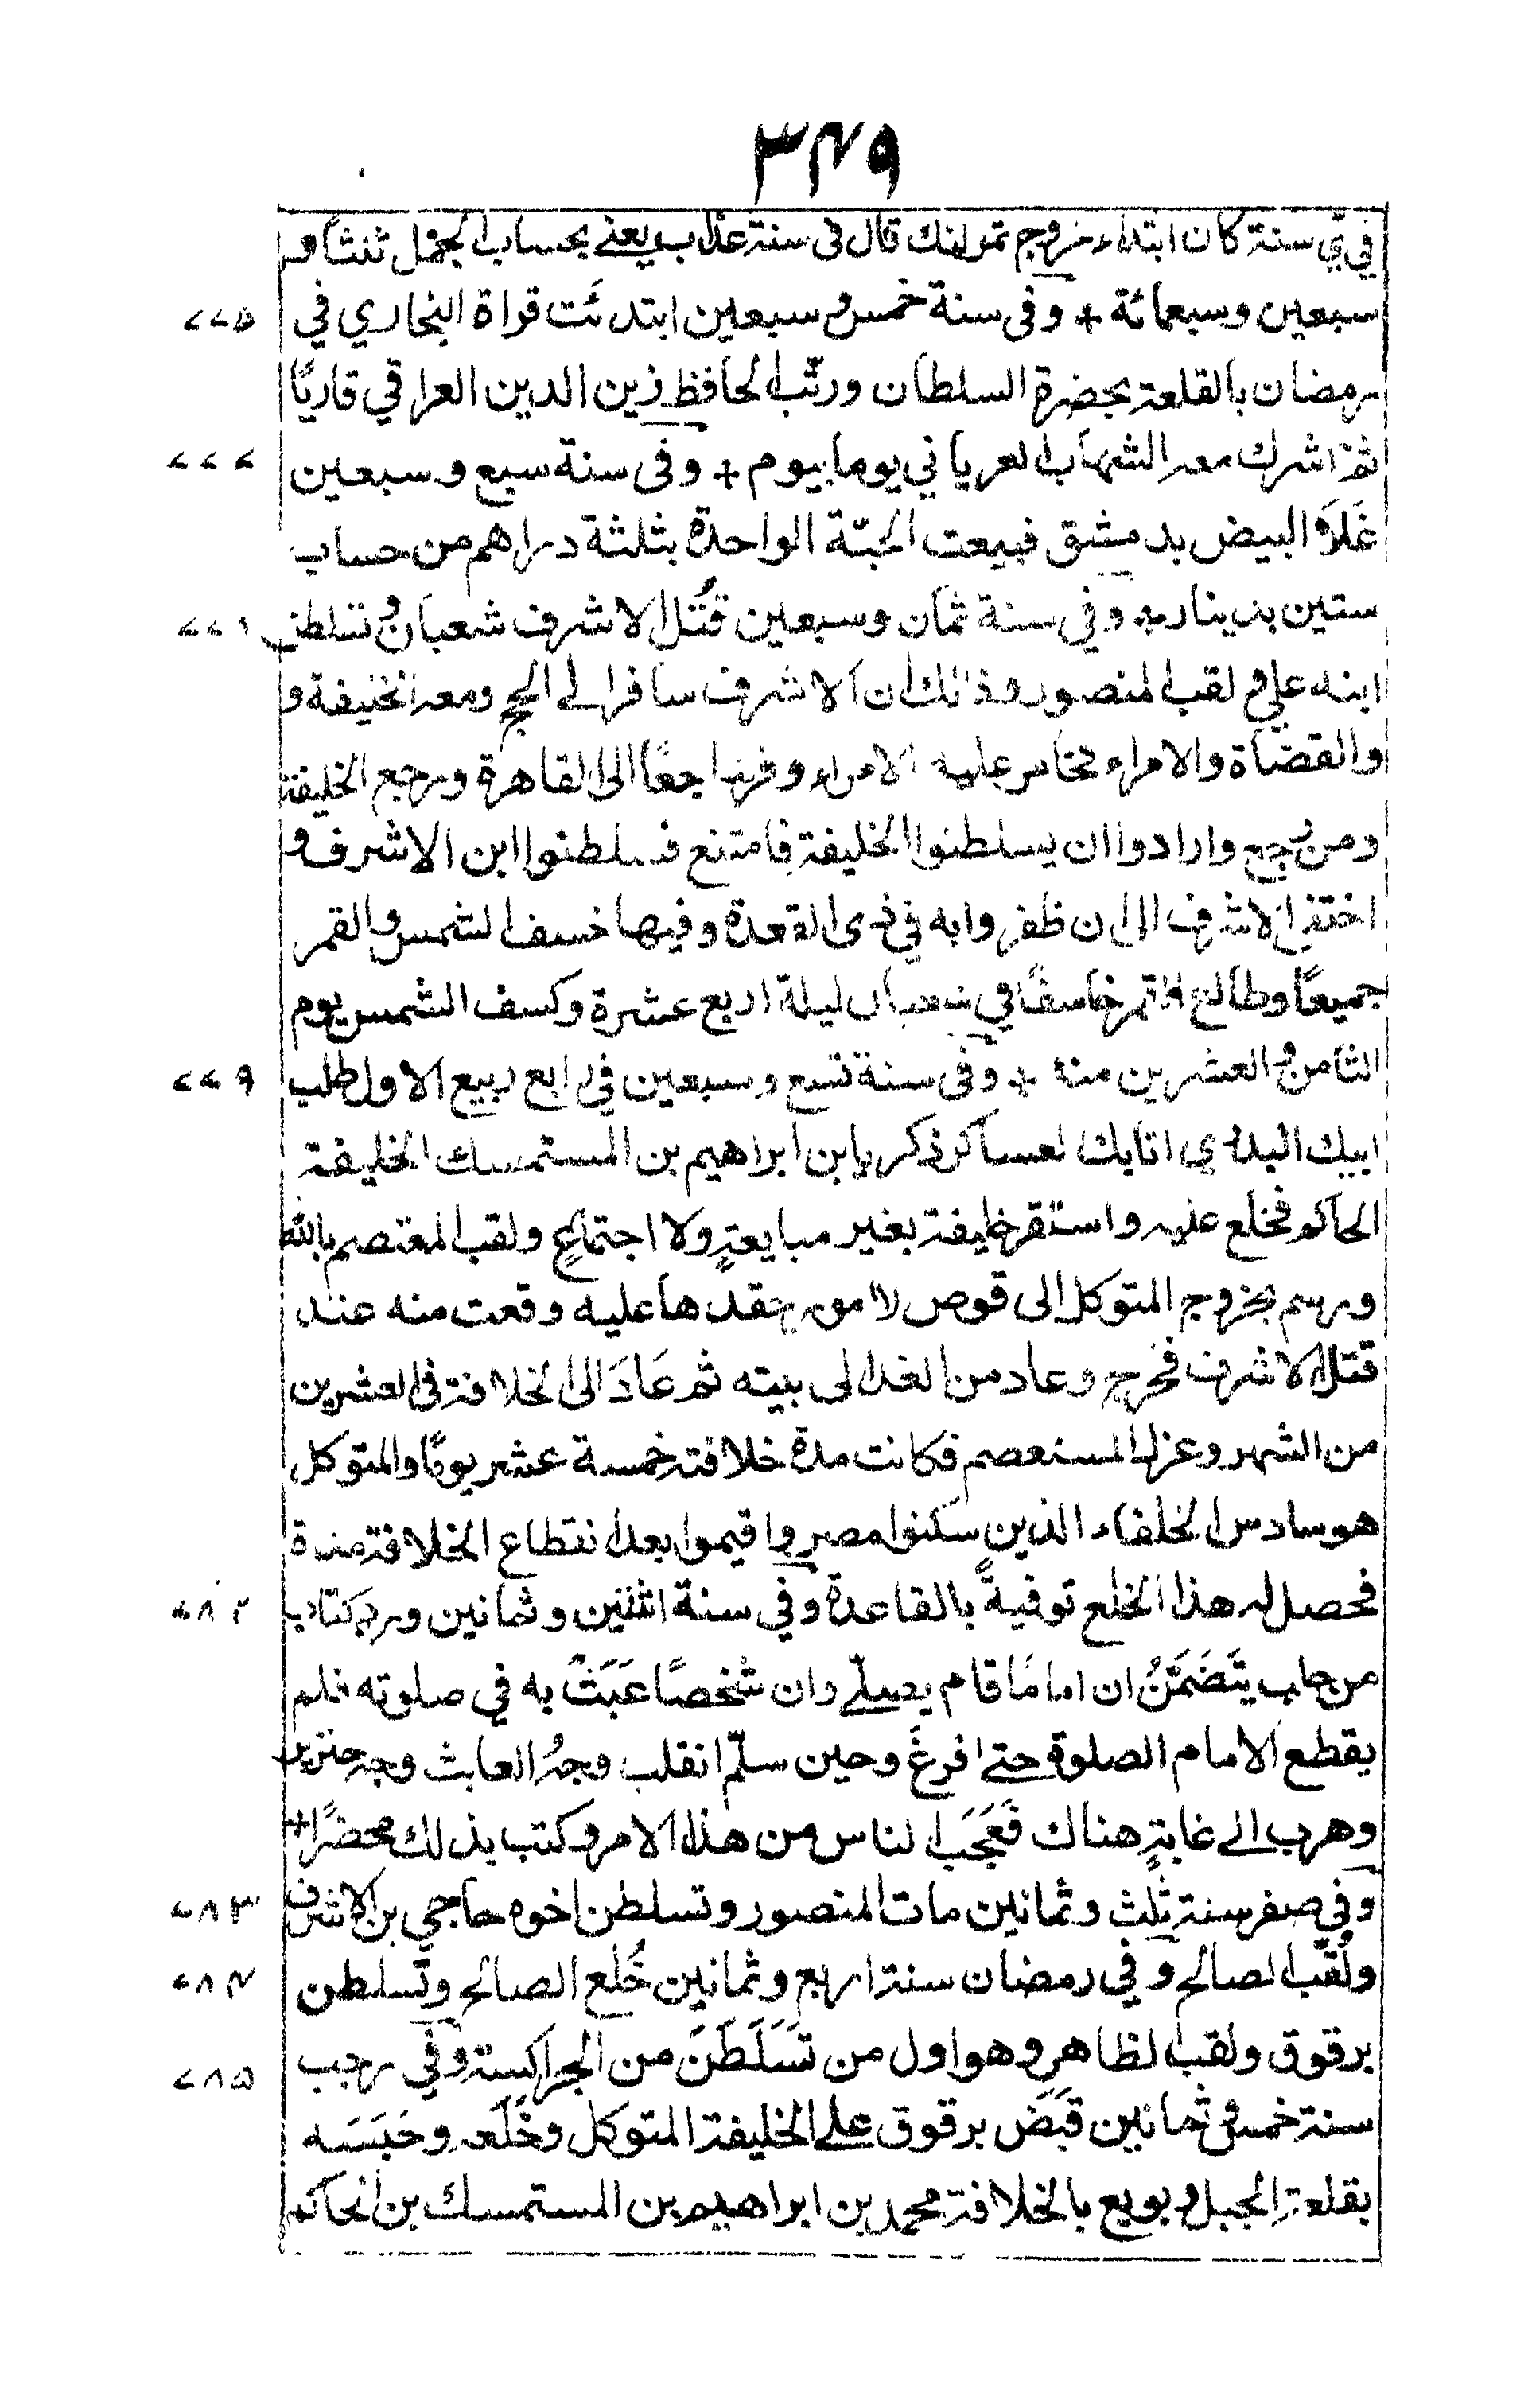 ٣٤٩
في تي سنة كان ابتداء خروج تمرلنك قال فى سنة عذاب يعني بحساب الجمل ثلث و
سبعين وسبعمائة + وفى سنة خمس وسبعين ابتدئت قراة البخاري في
٧٧٥
رمضان بالقلعة بحضرة السلطان ورتّب الحافظ زين الدين العراقي قاريًا
ثم اشرك معه الشهاب العرياني يوما بيوم + وفى سنة سبع وسبعين
٧٧٧
غَلَا البيض بدمشق فبيعت الحبّة الواحدة بثلثة دراهم من حساب
ستين بدينار + وفي سنة ثمان وسبعين قُتل الاشرف شعبان وتسلطن
٧٧٨
ابنه علي ولقب المنصور وذلك ان الاشرف سافر الى الحج ومعه الخليفة و
والقضاة والامراء فخامر عليه الامراء وفر راجعًا الى القاهرة ورجع الخليفة
ومن رجع وارادوا ان يسلطنوا الخليفة فامتنع فسلطنوا ابن الاشرف و
اختفى الاشرف الى ان ظفروا به في ذى القعدة وفيها خسف الشمس والقمر
جميعًا وطالع القمر خاسفًا في شعبان ليلة اربع عشرة وكسف الشمس يوم
الثامن والعشرين منه + وفى سنة تسع وسبعين في رابع ربيع الاول طلب
٧٧٩
ايبك البدري اتابك العساكر زكريا بن ابراهيم بن المستمسك الخليفة
الحاكم فخلع عليه واستقر خليفة بغير مبايعةٍ ولا اجتماعٍ ولقب المعتصم بالله
ورسم بخروج المتوكل الى قوص لامور حقدها عليه وقعت منه عند
قتل الاشرف فخرج وعاد من الغد الى بيته ثم عَادَ الى الخلافة فى العشرين
من الشهر وعزل المستعصم فكانت مدة خلافته خمسة عشر يومًا والمتوكل
هو سادس الخلفاء الذين سكنوا مصر واقيموا بعد انقطاع الخلافة مدة
فحصل له هذا الخلع توفيةً بالقاعدة وفي سنة اثنتين وثمانين ورد كتاب
٧٨٢
من حلب يتَضَمَّنُ ان اماما قام يصلّے وان شخصًا عَبَثَ به في صلوته فلم
يقطع الامام الصلوة حتے افرغَ وحين سلّم انقلب وجهُ العابث وجه خنزير
وهرب الے غابةٍ هناك فَعَجَبَ الناس من هذا الامر وكتب بذلك محضرًا +
وفي صفر سنة ثلث وثمانين مات المنصور وتسلطن اخوه حاجي بن الاشرف
٧٨٣
ولُقّب الصالح وفي رمضان سنة اربع وثمانين خُلع الصالح وتسلطن
٧٨٤
برقوق ولقب الظاهر وهو اول من تَسَلَطَنَ من الجراكسة وفي رجب
٧٨٥
سنة خمس وثمانين قَبَضَ برقوق علے الخليفة المتوكل وخَلَعه وحَبَسَه
بقلعة الجبل وبويع بالخلافة محمد بن ابراهيم بن المستمسك بن الحاكم